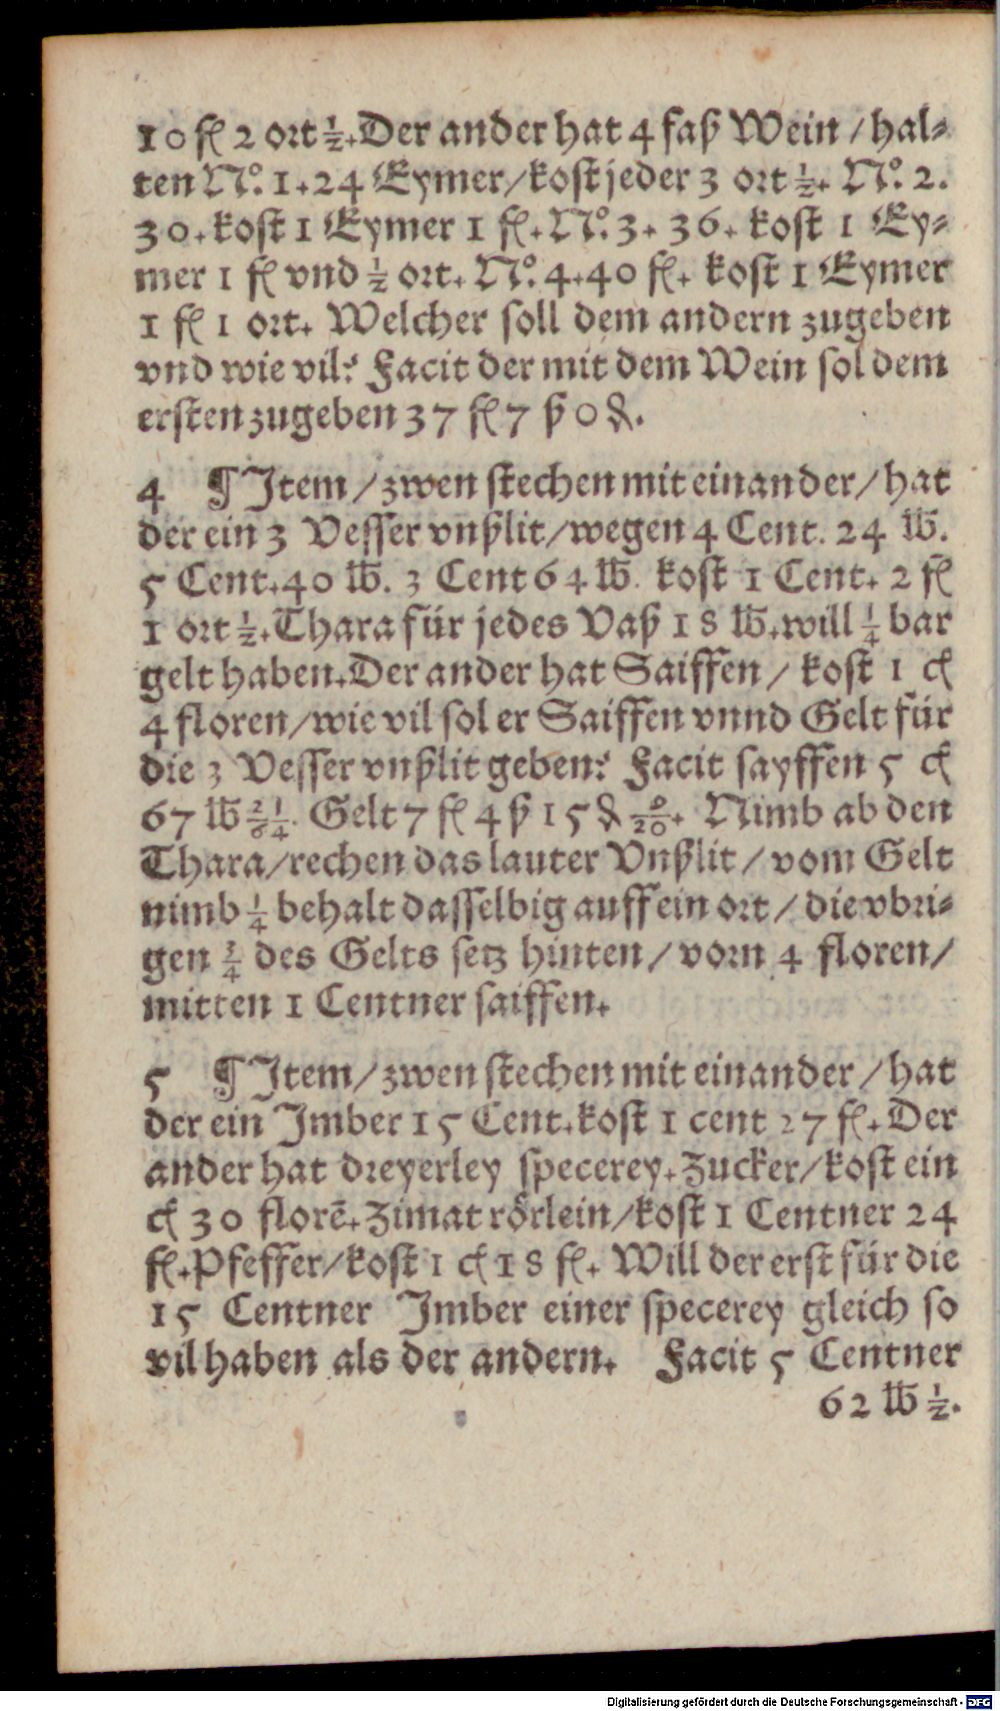 10 fl 2 ort ½. Der ander hat 4 faß Wein / hal⸗
ten N°. 1. 24 Eymer / kost jeder 3 ort ½. N°. 2.
30. kost 1 Eymer 1 fl. N°. 3. 36. kost 1 Ey⸗
mer 1 fl vnd ½ ort. N°. 4. 40 fl. kost 1 Eymer
1 fl 1 ort. Welcher soll dem andern zugeben
vnd wie vil? Facit der mit dem Wein sol dem
ersten zugeben 37 fl 7 ß 0 ₰.
4 ¶ Item / zwen stechen mit einander / hat
der ein 3 Vesser vnßlit / wegen 4 Cent. 24 ℔.
5 Cent. 40 ℔. 3 Cent 64 ℔. kost 1 Cent. 2 fl
1 ort ½. Thara für jedes Vaß 18 ℔. will ¼ bar
gelt haben. Der ander hat Saiffen / kost 1 ct
4 floren / wie vil sol er Saiffen vnnd Gelt für
die 3 Vesser vnßlit geben? Facit sayffen 5 ct
67 ℔ 21/64. Gelt 7 fl 4 ß 15 ₰ 9/20. Nimb ab den
Thara / rechen das lauter Vnßlit / vom Gelt
nimb ¼ behalt dasselbig auff ein ort / die vbri⸗
gen ¾ des Gelts setz hinten / vorn 4 floren /
mitten 1 Centner saiffen.
5 ¶ Item / zwen stechen mit einander / hat
der ein Imber 15 Cent. kost 1 cent 27 fl. Der
ander hat dreyerley specerey. Zucker / kost ein
ct 30 florē. Zimat rörlein / kost 1 Centner 24
fl. Pfeffer / kost 1 ct 18 fl. Will der erst für die
15 Centner Imber einer specerey gleich so
vil haben als der andern. Facit 5 Centner
62 ℔ ½.
Digitalisierung gefördert durch die Deutsche Forschungsgemeinschaft - DFG